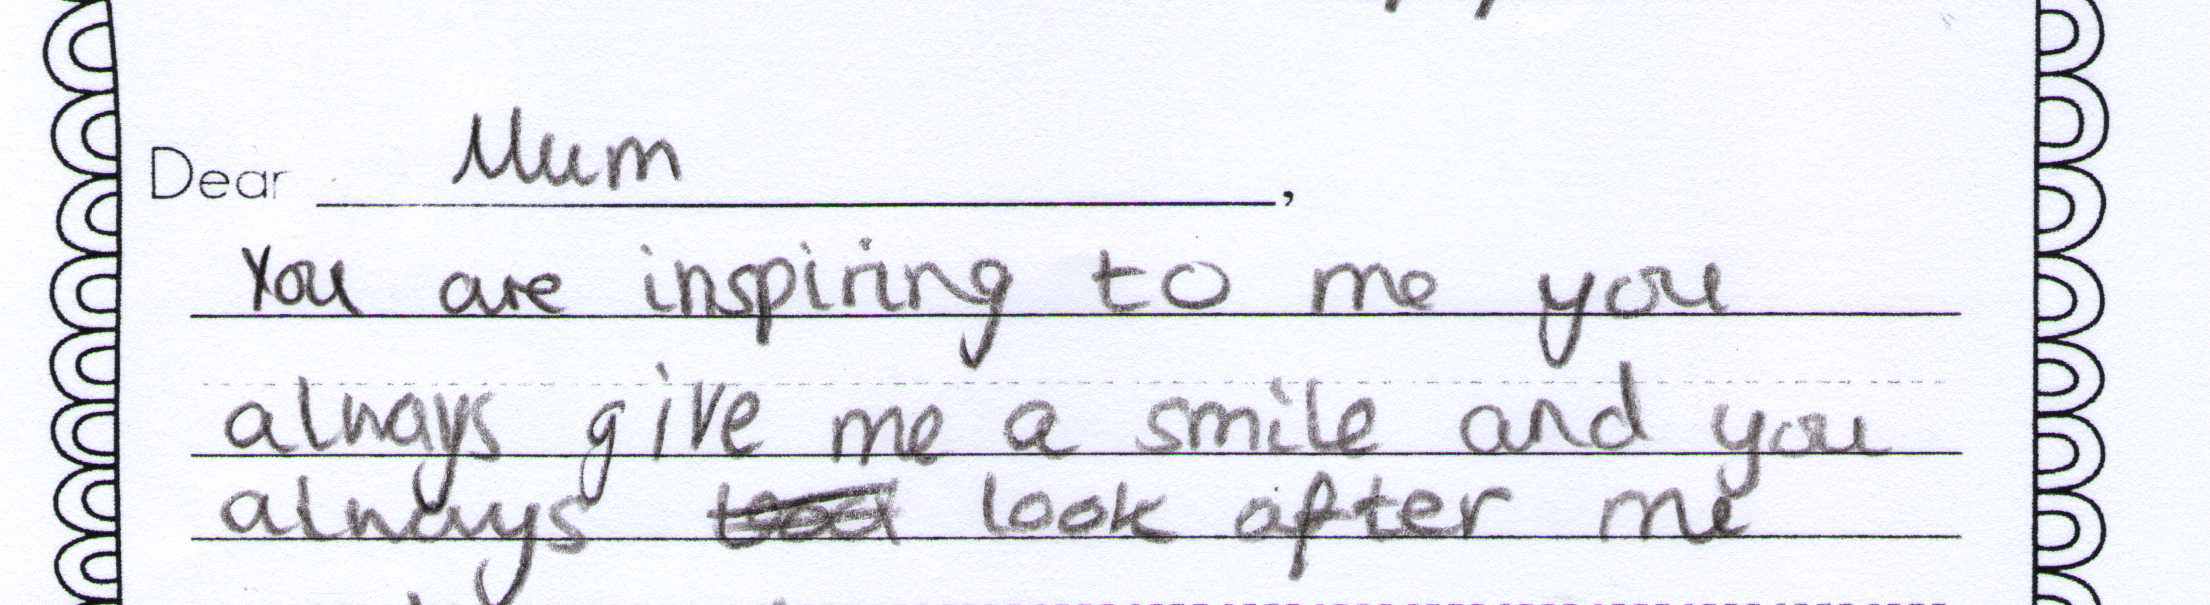 Dear Mum,
You are inspiring to me you
always give me a smile and you
always look after me